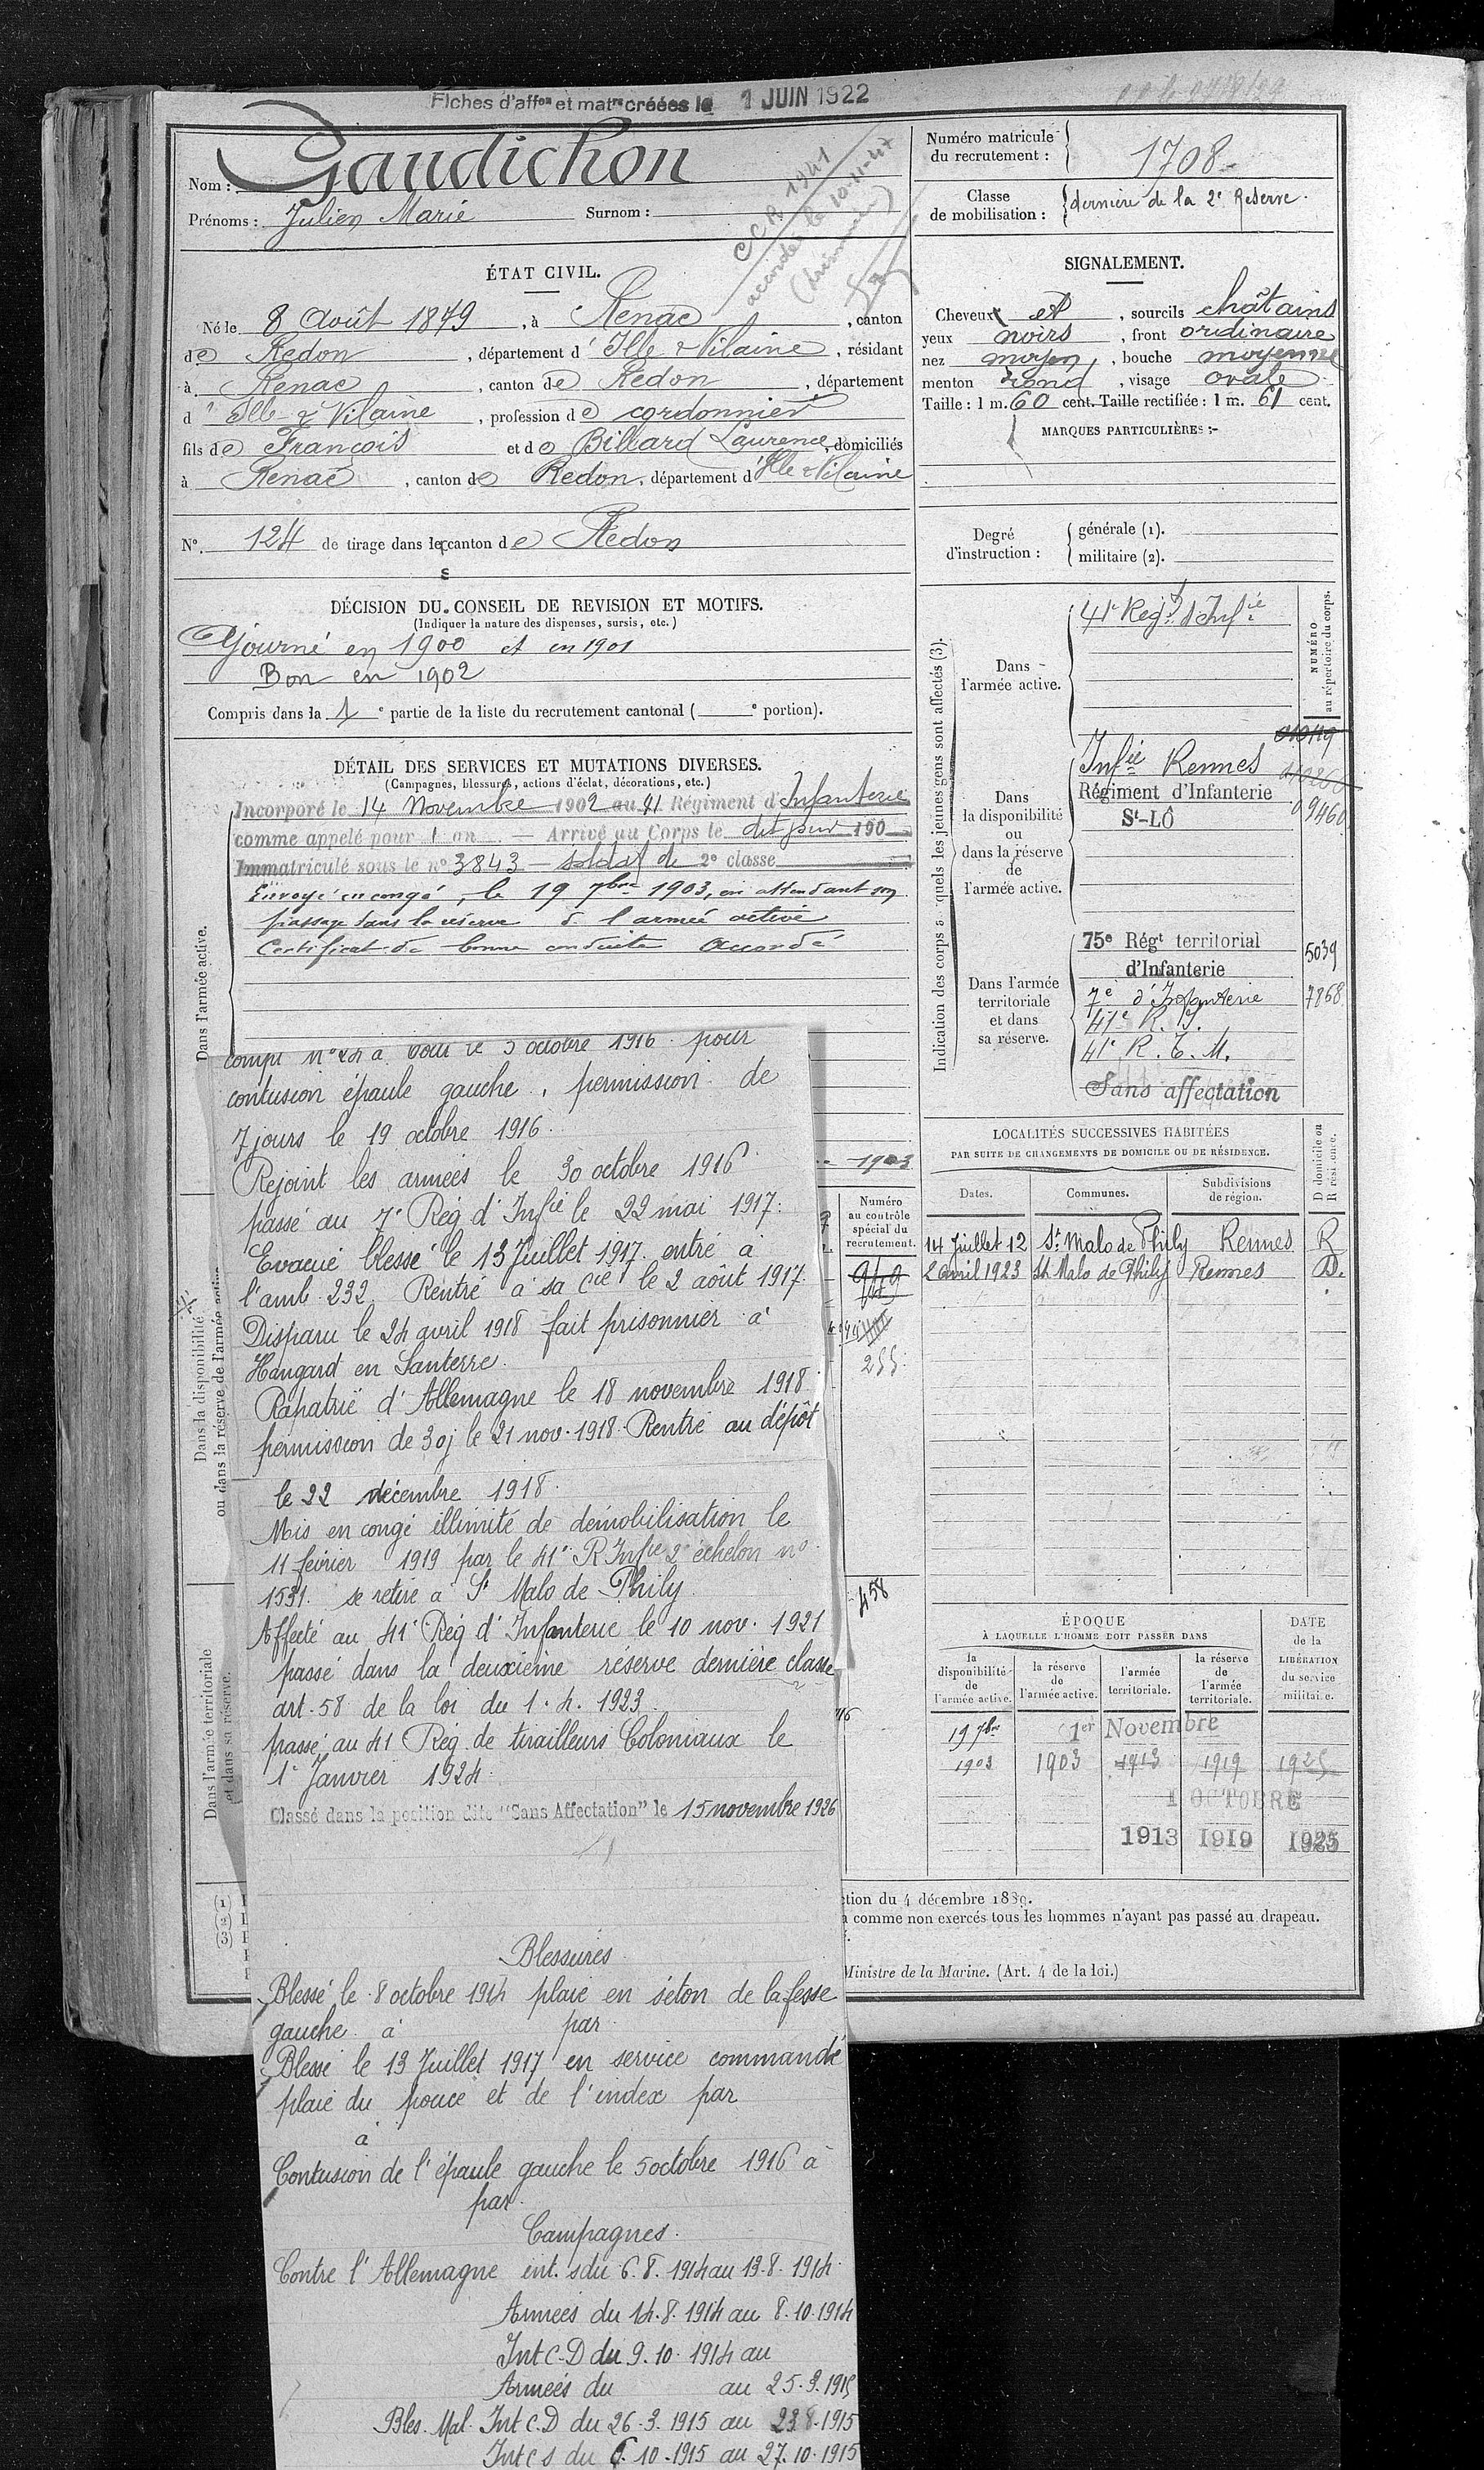 Fiches d'affon et matre créées le 1 JUIN 1922
Nom : Gaudichon
Prénoms : Julien Marie Surnom :
C.C.R. 1941
accordée le 10-11-47
Numéro matricule du recrutement : 1708
Classe de mobilisation : dernière de la 2e Réserve.
ÉTAT CIVIL.
Né le 8 Août 1879, à Renac, canton
de Redon, département d'Ille & Vilaine, résidant
à Renac, canton de Redon, département
d'Ille & Vilaine, profession de cordonnier
fils de François et de Billard Laurence, domiciliés
à Renac, canton de Redon, département d'Ille & Vilaine
No. 124 de tirage dans le canton de Redon
s
SIGNALEMENT.
Cheveux et, sourcils châtains
yeux noirs, front ordinaire
nez moyen, bouche moyenne
menton rond, visage ovale
Taille : 1 m. 60 cent. Taille rectifiée : 1 m. 61 cent.
MARQUES PARTICULIÈRES :-
Degré d'instruction :
générale (1).
militaire (2).
DÉCISION DU CONSEIL DE REVISION ET MOTIFS.
(Indiquer la nature des dispenses, sursis, etc.)
Ajourné en 1900 et en 1901
Bon en 1902
Compris dans la 1e partie de la liste du recrutement cantonal ( e portion).
DÉTAIL DES SERVICES ET MUTATIONS DIVERSES.
(Campagnes, blessures, actions d'éclat, décorations, etc.)
Dans l'armée active.
Incorporé le 14 Novembre 1902 au 41 Régiment d'Infanterie
comme appelé pour 1 an — Arrivé au Corps le dit jour 190
Immatriculé sous le no 3843 — soldat de 2e classe
Envoyé en congé, le 19 7bre 1903, en attendant son
passage dans la réserve de l'armée active
Certificat de bonne conduite accordé
octobre 1916 pour
contusion épaule gauche, permission de
7 jours le 19 octobre 1916.
Rejoint les armées le 30 octobre 1916
passé au 7e Rég d'Infie le 22 mai 1917.
Evacué blessé le 13 Juillet 1917 entré à
l'amb 232. Rentré à sa Cie le 2 août 1917.
Disparu le 24 avril 1918 fait prisonnier à
Hangard en Santerre.
Rapatrié d'Allemagne le 18 novembre 1918
permission de 30j le 21 nov. 1918. Rentré au dépôt
le 22 décembre 1918.
Mis en congé illimité de démobilisation le
11 février 1919 par le 41e R Infie 2e échelon no
1531. se retire à St Malo de Phily
Affecté au 41e Rég d'Infanterie le 10 nov. 1921
passé dans la deuxième réserve dernière classe
art. 58 de la loi du 1. 4. 1923
passé au 41 Rég de tirailleurs Coloniaux le
1e Janvier 1924.
Classé dans la position dite "Sans Affectation" le 15 novembre 1926
Blessures
Blessé le 8 octobre 1914 plaie en séton de la fesse
gauche à par
Blessé le 13 Juillet 1917 en service commandé
plaie du pouce et de l'index par
à
Contusion de l'épaule gauche le 5 octobre 1916 à
par.
Campagnes.
Contre l'Allemagne int. s du 6. 8. 1914 au 13. 8. 1914
Armées du 14. 8. 1914 au 8. 10. 1914
Int C-D du 9. 10. 1914 au
Armées du au 25. 3. 1915
Bles. Mal. Int C.D du 26. 3. 1915 au 23 8. 1915
Int C s du 6. 10. 1915 au 27. 10. 1915
Dans la disponibilité
ou dans la réserve de l'armée active
Dans l'armée territoriale
et dans sa réserve.
1903
Numéro
au contrôle
spécial du
recrutement.
949
255
458
(1)
(2)
(3)
Indication des corps auxquels les jeunes gens sont affectés (3).
NUMÉRO
au répertoire du corps.
Dans l'armée active.
41e Regt d'Infie
Dans la disponibilité ou dans la réserve de l'armée active.
Infie Rennes
Régiment d'Infanterie
St-LÔ
09460
Dans l'armée territoriale et dans sa réserve.
75e Régt territorial
d'Infanterie 5039
7e d'Infanterie 7868
41e R. I.
41e R. T. M.
Sans affectation
LOCALITÉS SUCCESSIVES HABITÉES
PAR SUITE DE CHANGEMENTS DE DOMICILE OU DE RÉSIDENCE.
Dates. Communes. Subdivisions de région. D domicile ou R résidence.
14 Juillet 12 St Malo de Phily Rennes R
2 avril 1923 St Malo de Phily Rennes D.
ÉPOQUE
À LAQUELLE L'HOMME DOIT PASSER DANS
DATE de la LIBÉRATION du service militaire.
la disponibilité de l'armée active. la réserve de l'armée active. l'armée territoriale. la réserve de l'armée territoriale.
19 7bre 1er Novembre
1903 1903 1913 1919 1925
1 OCTOBRE
1913 1919 1925
ction du 4 décembre 1889.
a comme non exercés tous les hommes n'ayant pas passé au drapeau.
Ministre de la Marine. (Art. 4 de la loi.)